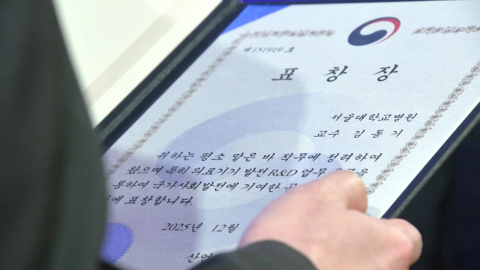 제151919호
표 창 장
서울대학교병원
교수 김 동 기
귀하는 평소 맡은 바 직무에 정려하여
왔으며 특히 의료기기 발전 R&D 업무
통하여 국가사회발전에 기여한
에 표창합니다.
2025년 12월
산업